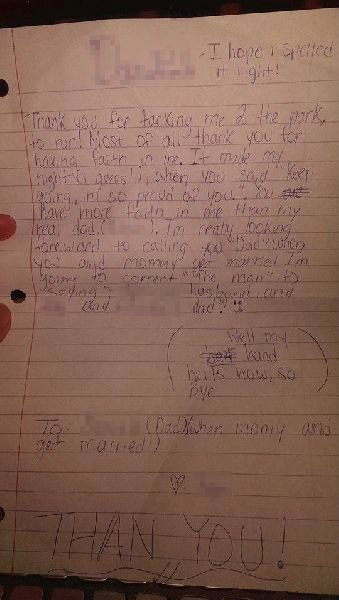 - I hope i spelled
it right!
Thank you for tacking me 2 the park,
to run! Most of all thank you for
having faith in me. It made my
night (i guess), when you said "keep
going, im so proud of you". You
have more faith in me than my
real dad. I'm really looking
foreward to calling you "Dad" when
you and momay get married. I'm
going to correct "The man" to
"saying" husband and
and dad"! :)
(Well my
hand
hurts now, so
bye.)
To- (Dad) when momy and
get married!)
♡
THANK YOU!